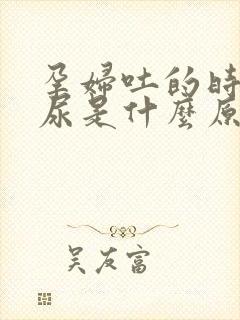 孕婦吐的時
尿是什麼原
吳友富